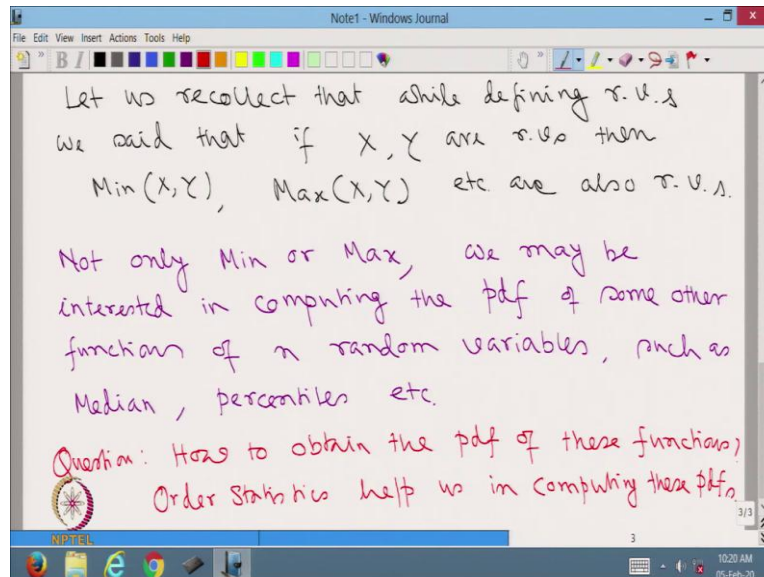 Note1 - Windows Journal
File Edit View Insert Actions Tools Help
B I
Let us recollect that while defining r.v.s
we said that if X, Y are r.vs then
Min (X,Y), Max (X,Y) etc. are also r.v.s.
Not only Min or Max, we may be
interested in computing the pdf of some other
functions of n random variables, such as
Median, percentiles etc.
Question: How to obtain the pdf of these functions?
Order Statistics help us in computing these pdfs
3/3
NPTEL
3
10:20 AM
05-Feb-20